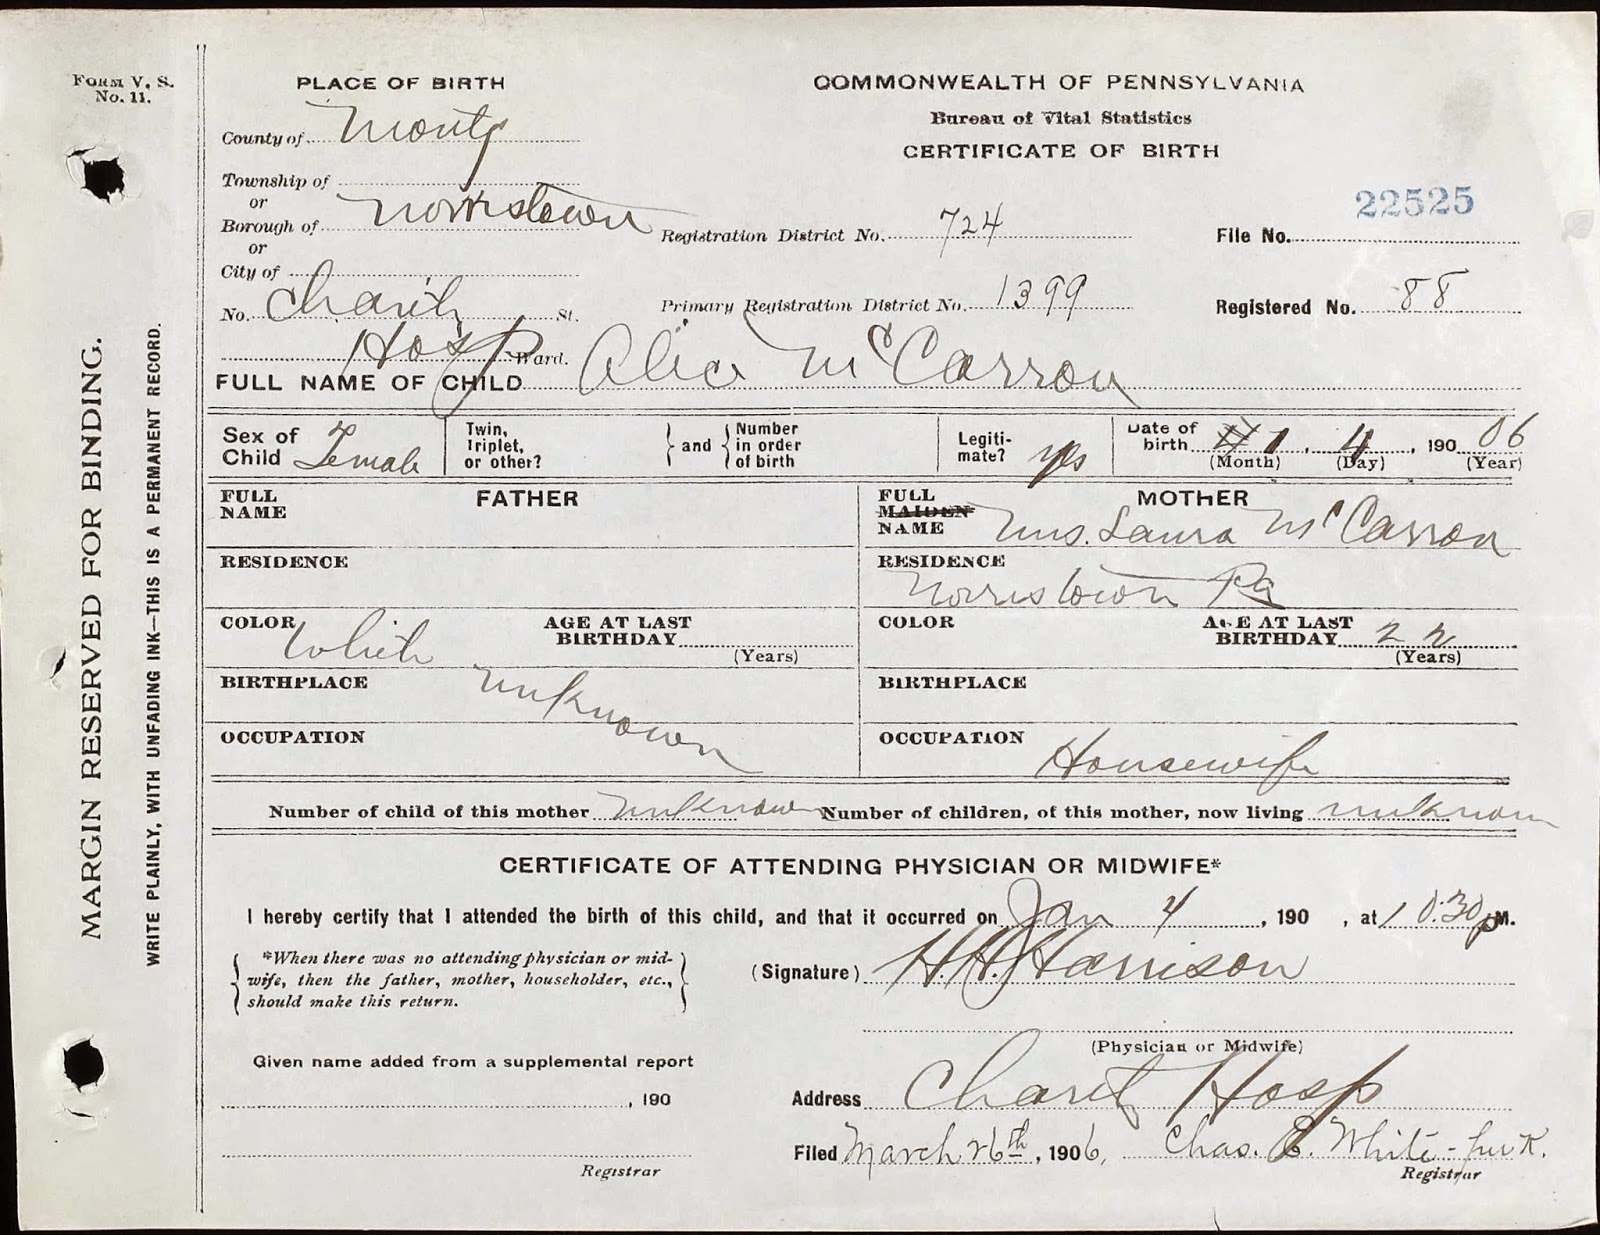 Form V. S.
No. 11.
MARGIN RESERVED FOR BINDING.
WRITE PLAINLY, WITH UNFADING INK—THIS IS A PERMANENT RECORD.
PLACE OF BIRTH
County of Montg
Township of
or
Borough of Norristown
or
City of
No. Charity St.
Hosp Ward.
COMMONWEALTH OF PENNSYLVANIA
Bureau of Vital Statistics
CERTIFICATE OF BIRTH
22525
Registration District No. 724 File No.
Primary Registration District No. 1399 Registered No. 88
FULL NAME OF CHILD Alice McCarron
Sex of Child Female
Twin, Triplet, or other? } and { Number in order of birth
Legiti-mate? yes
Date of birth 1, 4, 1906
(Month) (Day) (Year)
FATHER
FULL NAME
RESIDENCE
COLOR White AGE AT LAST BIRTHDAY (Years)
BIRTHPLACE unknown
OCCUPATION
MOTHER
FULL MAIDEN NAME Mrs. Laura McCarron
RESIDENCE Norristown Pa
COLOR AGE AT LAST BIRTHDAY 22 (Years)
BIRTHPLACE
OCCUPATION Housewife
Number of child of this mother unknown Number of children, of this mother, now living unknown
CERTIFICATE OF ATTENDING PHYSICIAN OR MIDWIFE*
I hereby certify that I attended the birth of this child, and that it occurred on Jan 4, 190 , at 10:30 p M.
*When there was no attending physician or mid-
wife, then the father, mother, householder, etc.,
should make this return.
(Signature) H. H. Harrison
(Physician or Midwife)
Given name added from a supplemental report
, 190
Registrar
Address Charity Hosp
Filed March 26th, 1906, Chas. E. White - per K.
Registrar